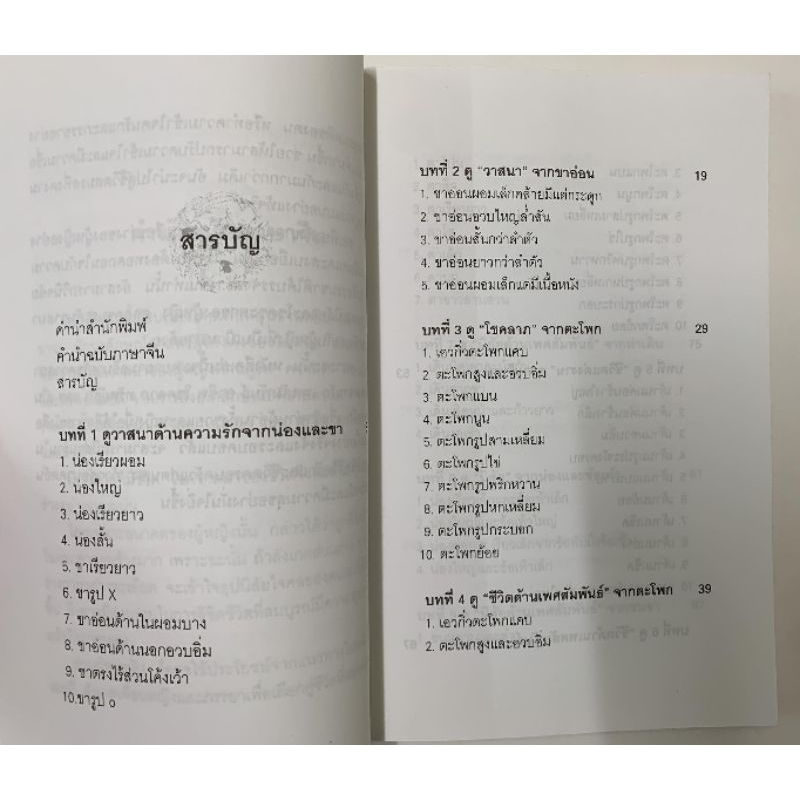 สารบัญ
คำนำสำนักพิมพ์
คำนำฉบับภาษาจีน
สารบัญ
บทที่ 1 ดูวาสนาด้านความรักจากน่องและขา
1. น่องเรียวผอม
2. น่องใหญ่
3. น่องเรียวยาว
4. น่องสั้น
5. ขาเรียวยาว
6. ขารูป X
7. ขาอ่อนด้านในผอมบาง
8. ขาอ่อนด้านนอกอวบอิ่ม
9. ขาตรงไร้ส่วนโค้งเว้า
10.ขารูป o
บทที่ 2 ดู “วาสนา” จากขาอ่อน 19
1. ขาอ่อนผอมเล็กคล้ายมีแต่กระดูก
2. ขาอ่อนอวบใหญ่ล่ำสัน
3. ขาอ่อนสั้นกว่าลำตัว
4. ขาอ่อนยาวกว่าลำตัว
5. ขาอ่อนผอมเล็กแต่มีเนื้อหนัง
บทที่ 3 ดู “โชคลาภ” จากตะโพก 29
1. เอวกิ่วตะโพกแคบ
2. ตะโพกสูงและอวบอิ่ม
3. ตะโพกแบน
4. ตะโพกนูน
5. ตะโพกรูปสามเหลี่ยม
6. ตะโพกรูปไข่
7. ตะโพกรูปพริกหวาน
8. ตะโพกรูปหกเหลี่ยม
9. ตะโพกรูปกระบอก
10. ตะโพกย้อย
บทที่ 4 ดู “ชีวิตด้านเพศสัมพันธ์” จากตะโพก 39
1. เอวกิ่วตะโพกแคบ
2. ตะโพกสูงและอวบอิ่ม